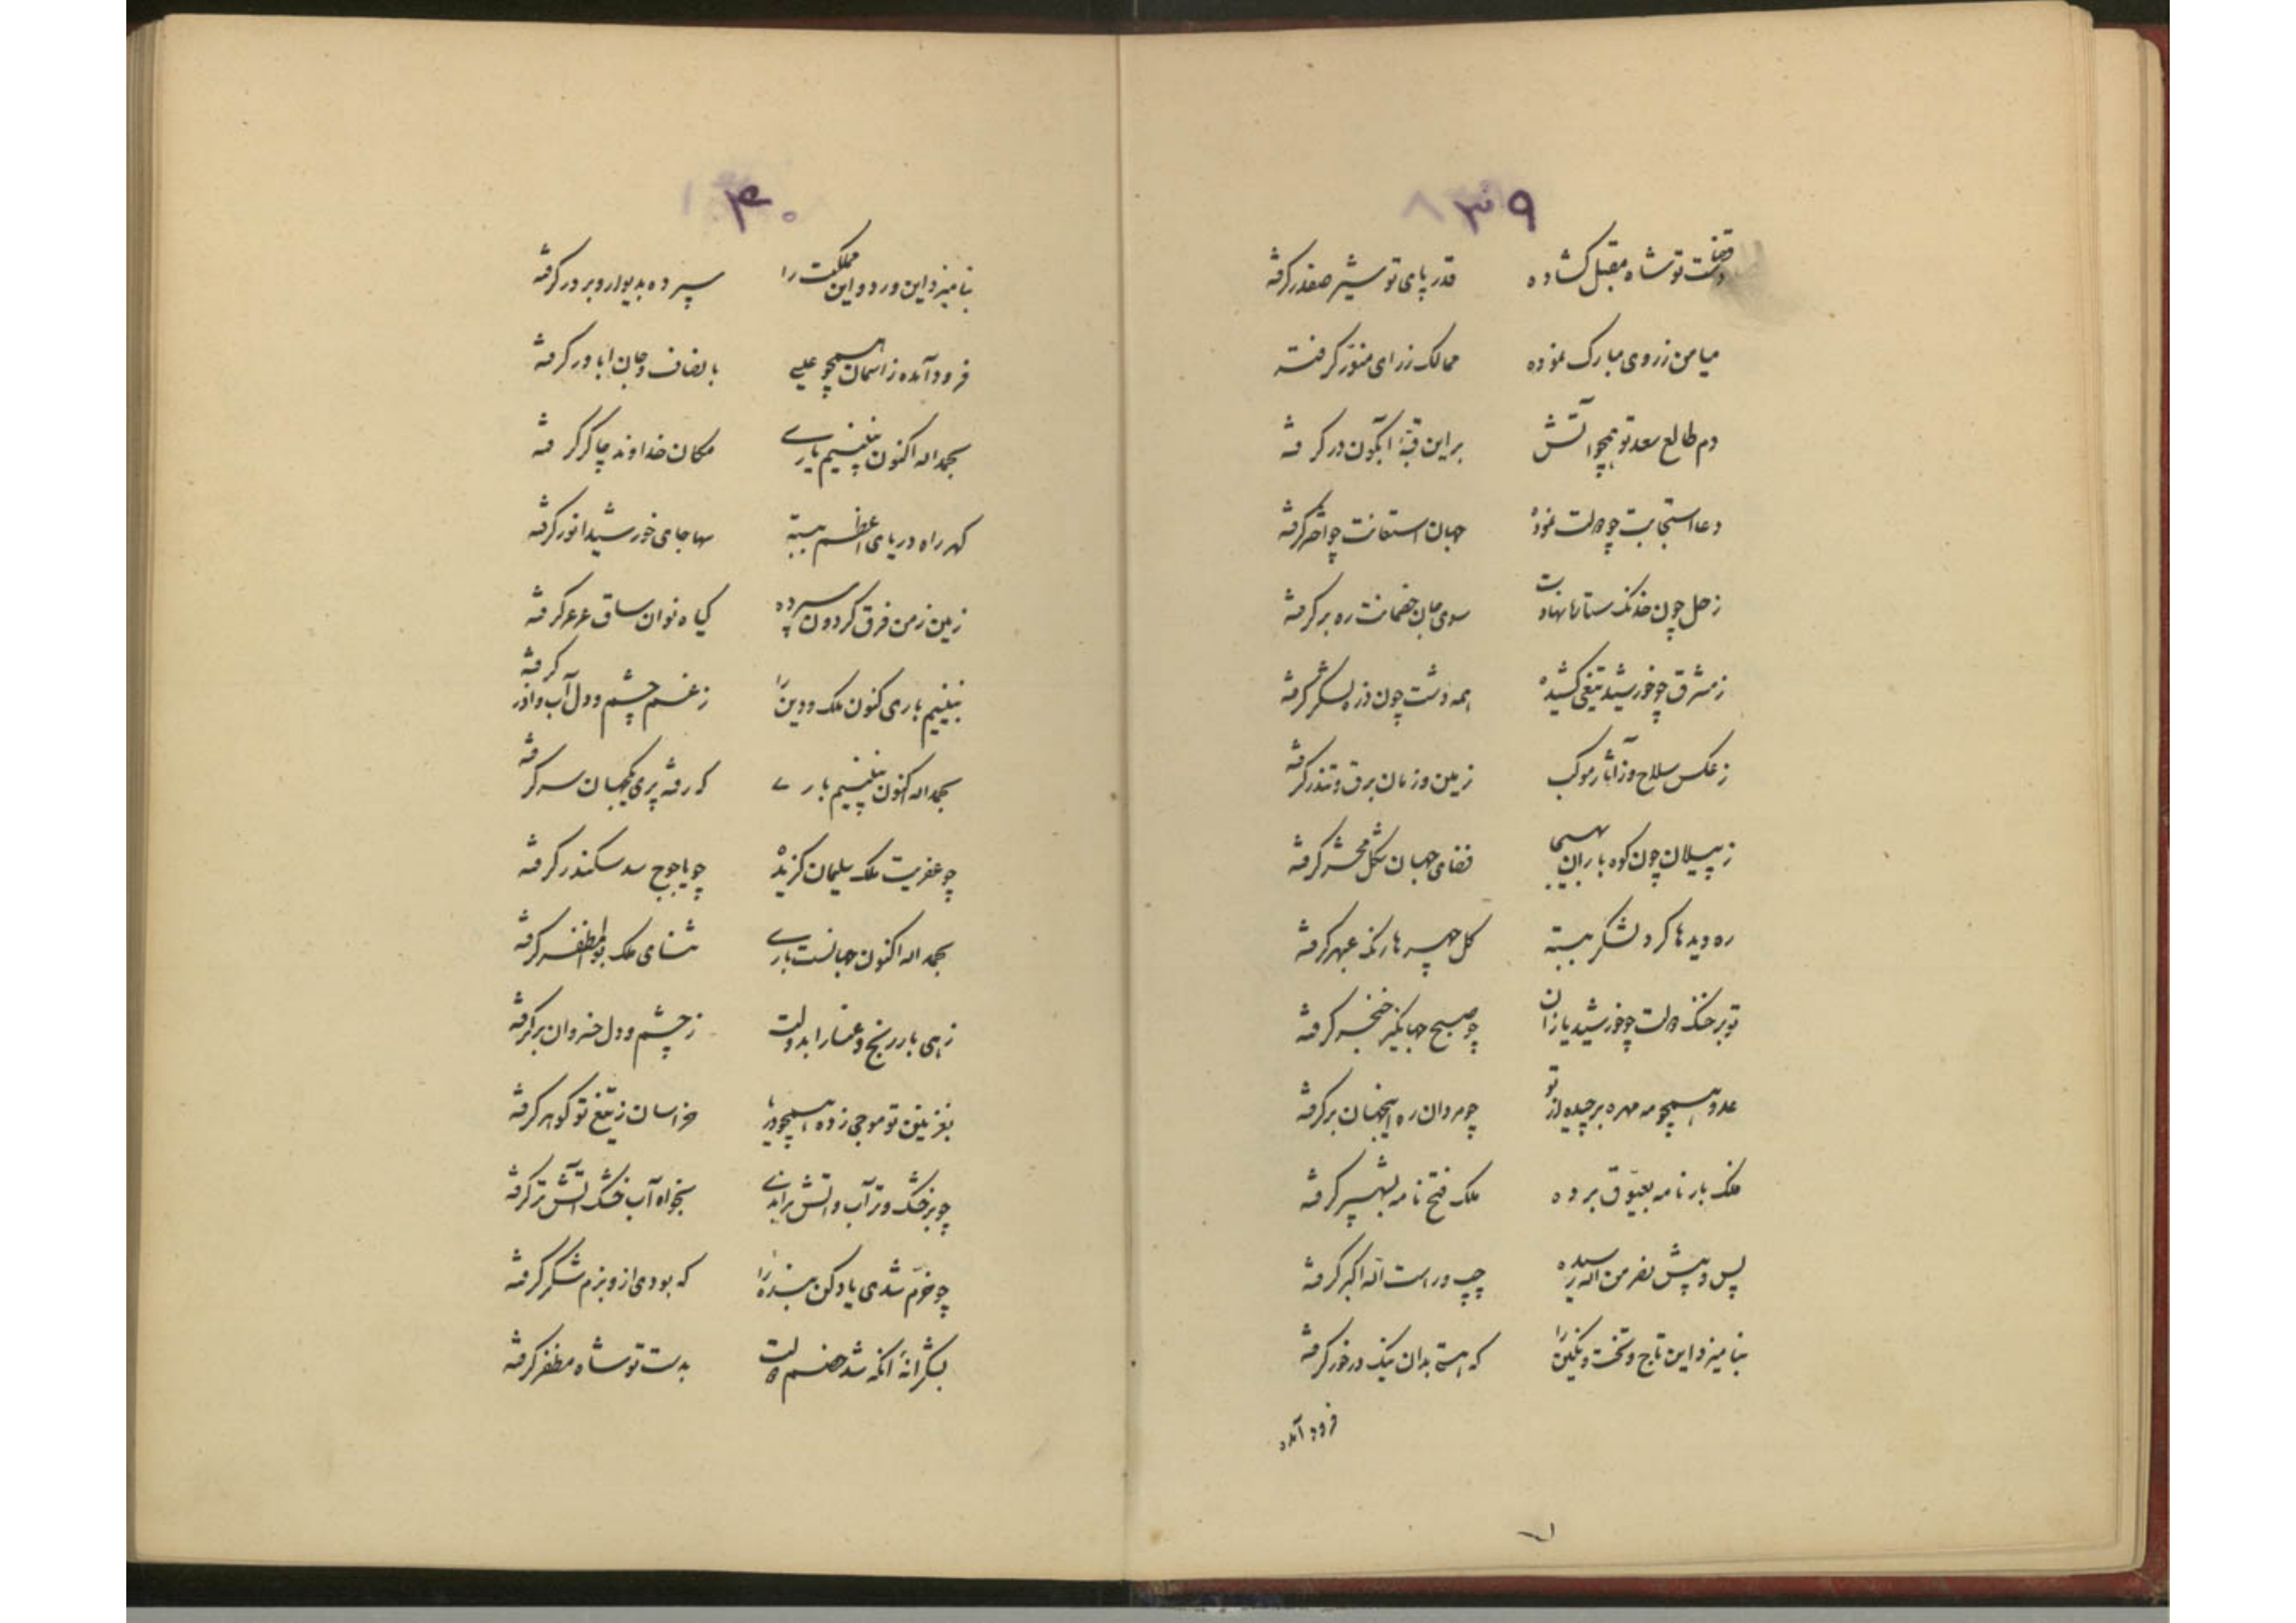 ۳۹
قضا دست تو شاه مقبل کشاده قدر پای تو شیر صفدر کرفته
میامن ز روی مبارک نموده ممالک ز رای منور کرفته
دم طالع سعد تو همچو آتش بر این قبهٔ آبگون در کرفته
دعا استجابت چو دولت نموده جهان استعانت چو اختر کرفته
زحل چون خدنک ستارها نهادت سوی جان خصمانت ره بر کرفته
ز مشرق چو خورشید تیغی کشیده همه دشت چون ذره لشکر کرفته
ز عکس سلاح و ز آثار موکب زمین و زمان برق و تندر کرفته
ز پیلان چون کوه باران بهیبی فضای جهان شکل محشر کرفته
ره دیدها کرد لشکر ببسته کل چهرها رنک عبهر کرفته
تو بر خنک دولت چو خورشید یازان چو صبح جهانگیر خنجر کرفته
عدو همچو مه مهره برچیده از تو چو مردان ره اینجهان بر کرفته
فلک بارنامه بعیّوق برده ملک فتح نامه بشهپر کرفته
پس و پیش نصر من الله رسیده چپ و راست الله اکبر کرفته
بنامیزد این تاج و تخت و نکین را که هستی بدان نیک درخور کرفته
فرود آمده
۴۰
بنامیزد این ورد و این مملکت را سپرده بدیوار و بر در کرفته
فرود آمده ز اسمان همچو عیسی بانصاف و جان ابا در کرفته
بحمد اله اکنون نبینیم باری مکان خداوند چاکر کرفته
کهر راه دریای اعظم ببسته سها جای خورشید انور کرفته
زمین زمن فرق کردون سپرده کیاه نوان ساق عرعر کرفته
نبینیم باری کنون ملک و دین را ز غم چشم و دل آب و اذر کرفته
بحمد اله اکنون نبینیم باری که رفته پری کیهان سر کرفته
چو عفریت ملک سلیمان کزیده چو یاجوج سد سکندر کرفته
بحمد اله اکنون جهانست باری ثنای ملک بوالمظفر کرفته
زهی بار رنج و عنا را بدولت ز چشم و دل خسروان بر کرفته
بغزنین تو موجی زده همچو دریا خراسان ز تیغ تو کوهر کرفته
چو بر خشک و تر آب و اتش براندی بخواه آب خشک اتش تر کرفته
چو خرم شدی یاد کن بنده را که بودی ازو بزم شکر کرفته
بشکرانهٔ انکه شد خصم دولت بدست تو شاه مظفر کرفته